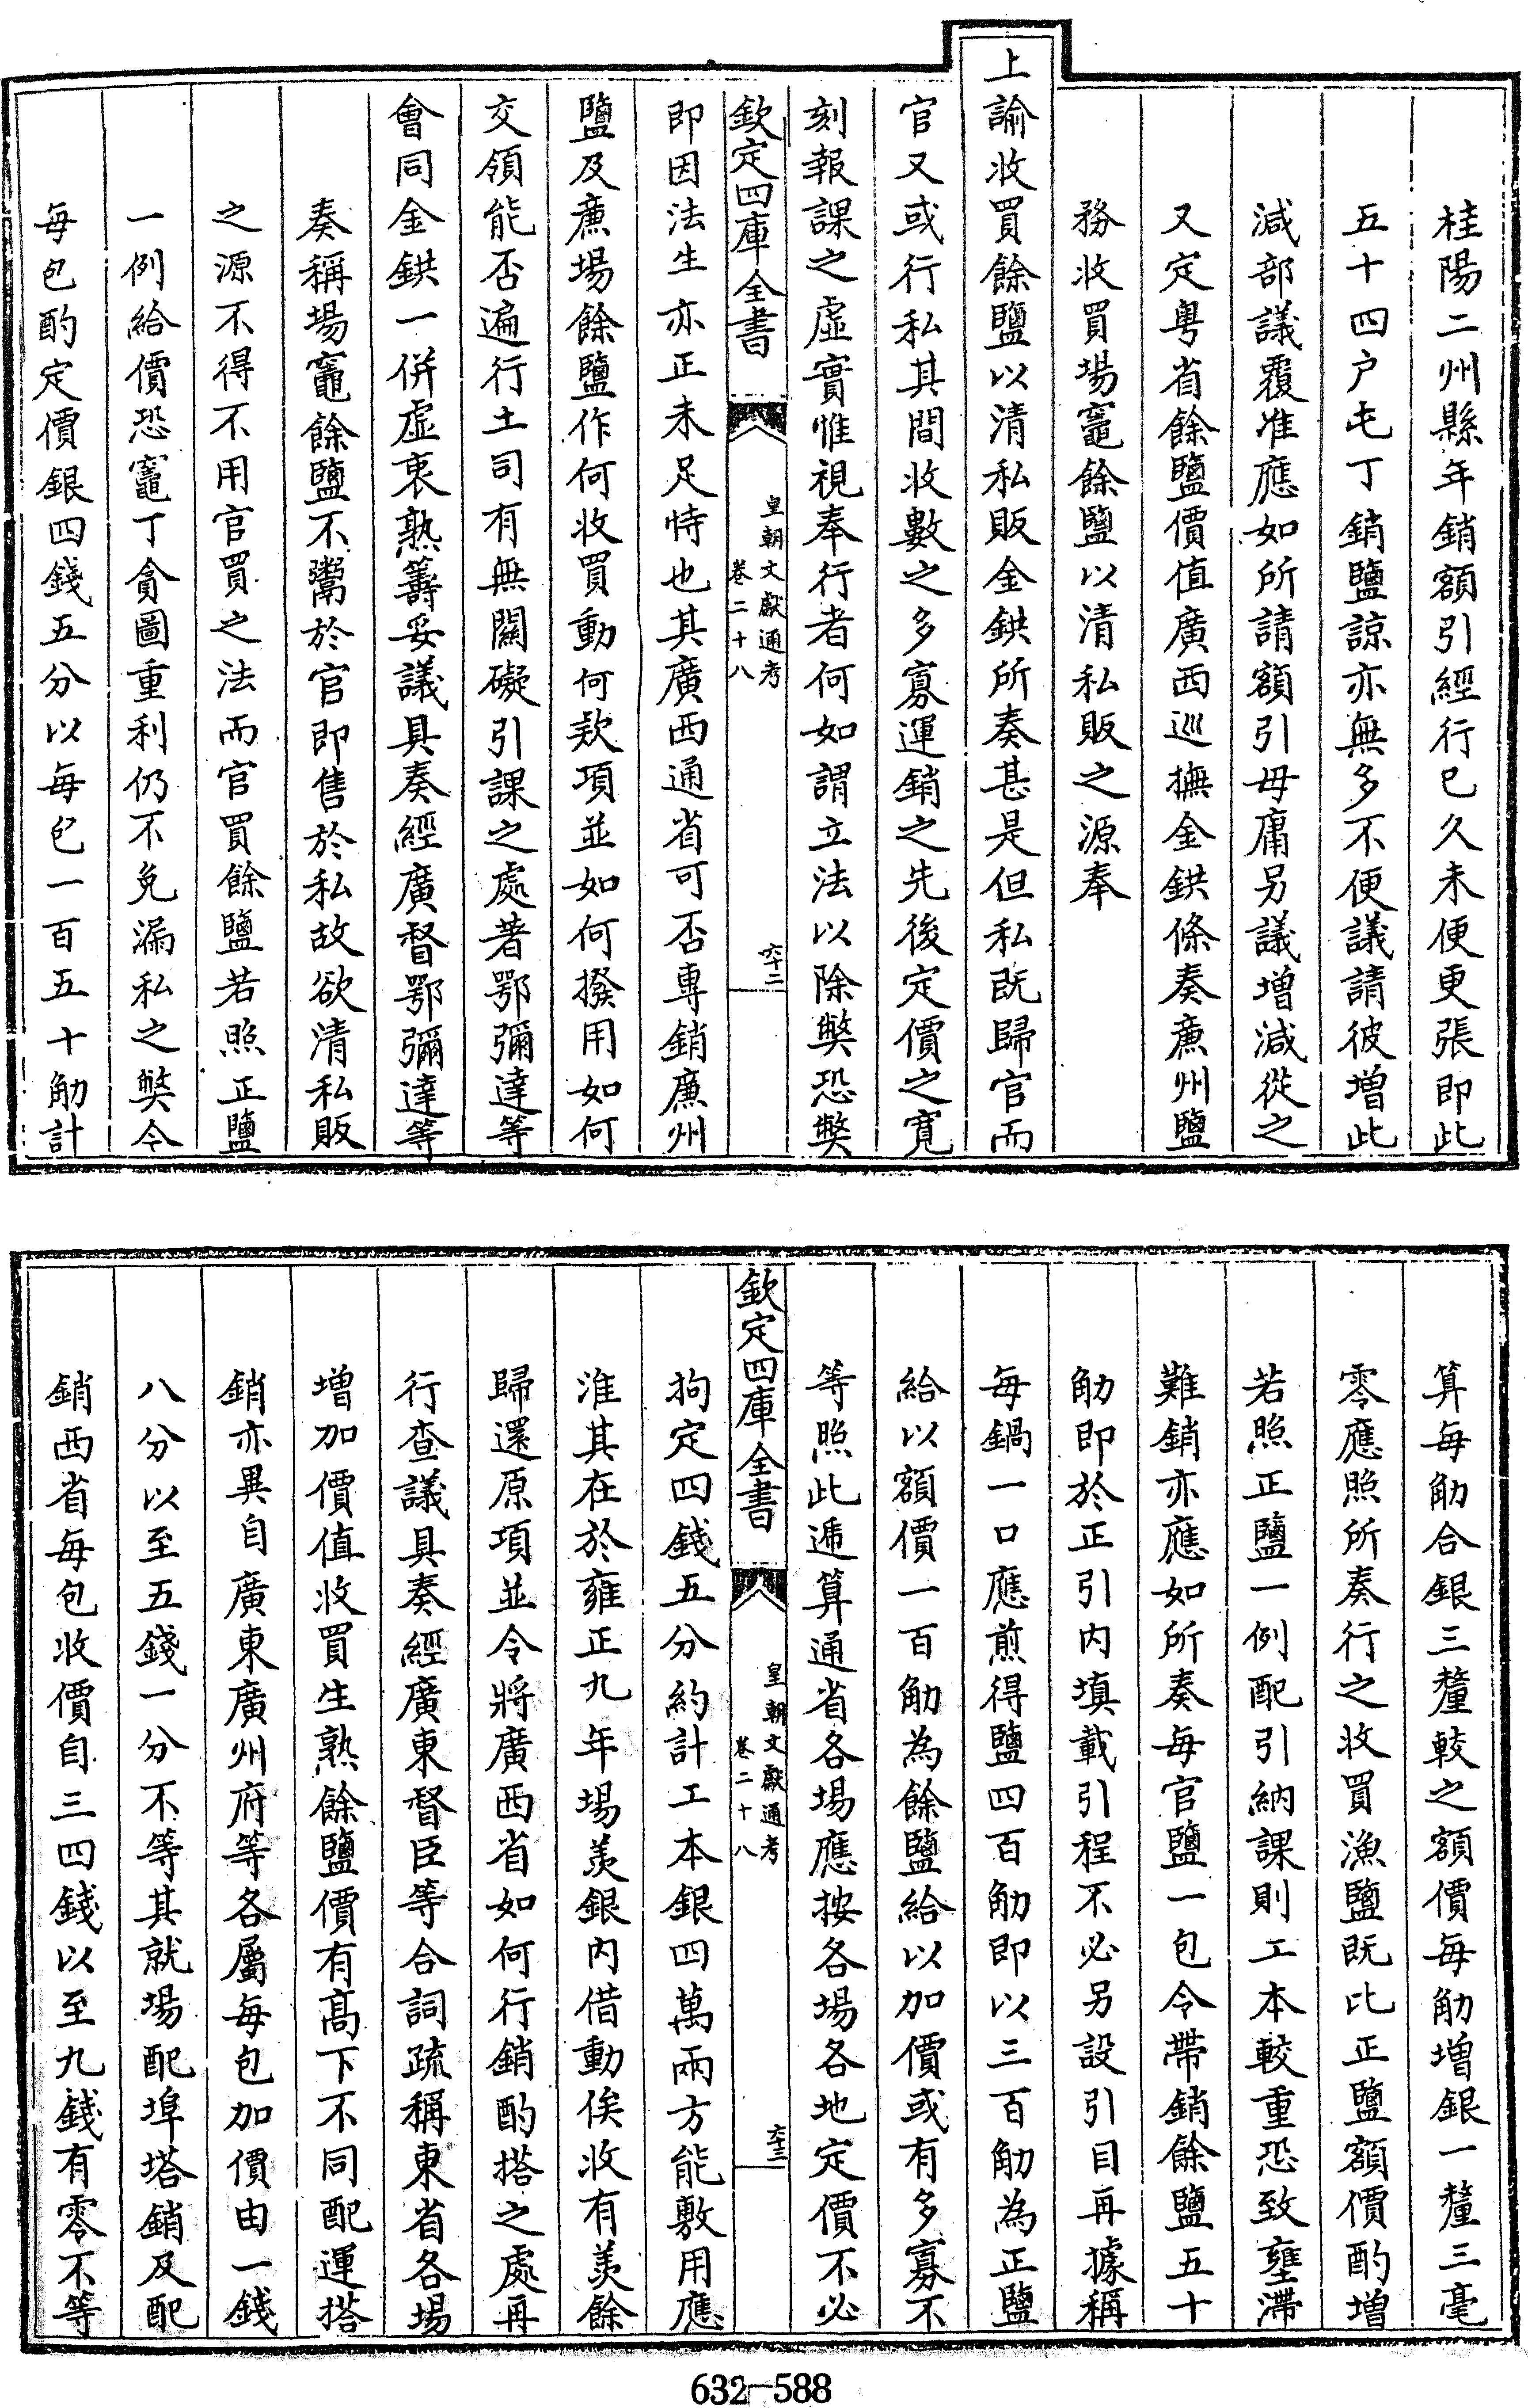 桂陽二州縣年銷額引經行已久未便更張即此
五十四户屯丁銷鹽諒亦無多不便議請彼増此
減部議覆准應如所請額引毋庸另議増減從之
又定粤省餘鹽價值廣西巡撫金鉷條奏亷州鹽
務收買場竈餘鹽以清私販之源奉
上諭收買餘鹽以清私販金鉷所奏甚是但私既歸官而
官又或行私其間收數之多寡運銷之先後定價之寛
刻報課之虚實惟視奉行者何如謂立法以除弊恐弊
欽定四庫全書
皇朝文獻通考
卷二十八
六十二
即因法生亦正未足恃也其廣西通省可否專銷廉州
鹽及亷場餘鹽作何收買動何款項並如何撥用如何
交領能否遍行土司有無關礙引課之處著鄂彌達等
會同金鉷一併虚衷熟籌妥議具奏經廣督鄂彌達等
奏稱場竈餘鹽不鬻於官即售於私故欲清私販
之源不得不用官買之法而官買餘鹽若照正鹽
一例給價恐竈丁貪圖重利仍不免漏私之弊今
每包酌定價銀四錢五分以每包一百五十觔計
算每觔合銀三釐較之額價每觔増銀一釐三毫
零應照所奏行之收買漁鹽既比正鹽額價酌增
若照正鹽一例配引納課則工本較重恐致壅滯
難銷亦應如所奏每官鹽一包令帶銷餘鹽五十
觔即於正引内填載引程不必另設引目再據稱
每鍋一口應煎得鹽四百觔即以三百觔為正鹽
給以額價一百觔為餘鹽給以加價或有多寡不
等照此遞算通省各場應按各場各地定價不必
欽定四庫全書
皇朝文獻通考
卷二十八
六十三
拘定四錢五分約計工本銀四萬兩方能敷用應
准其在於雍正九年場羨銀内借動俟收有羨餘
歸還原項並令將廣西省如何行銷酌搭之處再
行查議具奏經廣東督臣等合詞疏稱東省各場
増加價值收買生熟餘鹽價有髙下不同配運搭
銷亦異自廣東廣州府等各屬每包加價由一錢
八分以至五錢一分不等其就場配埠塔銷及配
銷西省每包收價自三四錢以至九錢有零不等
632-588